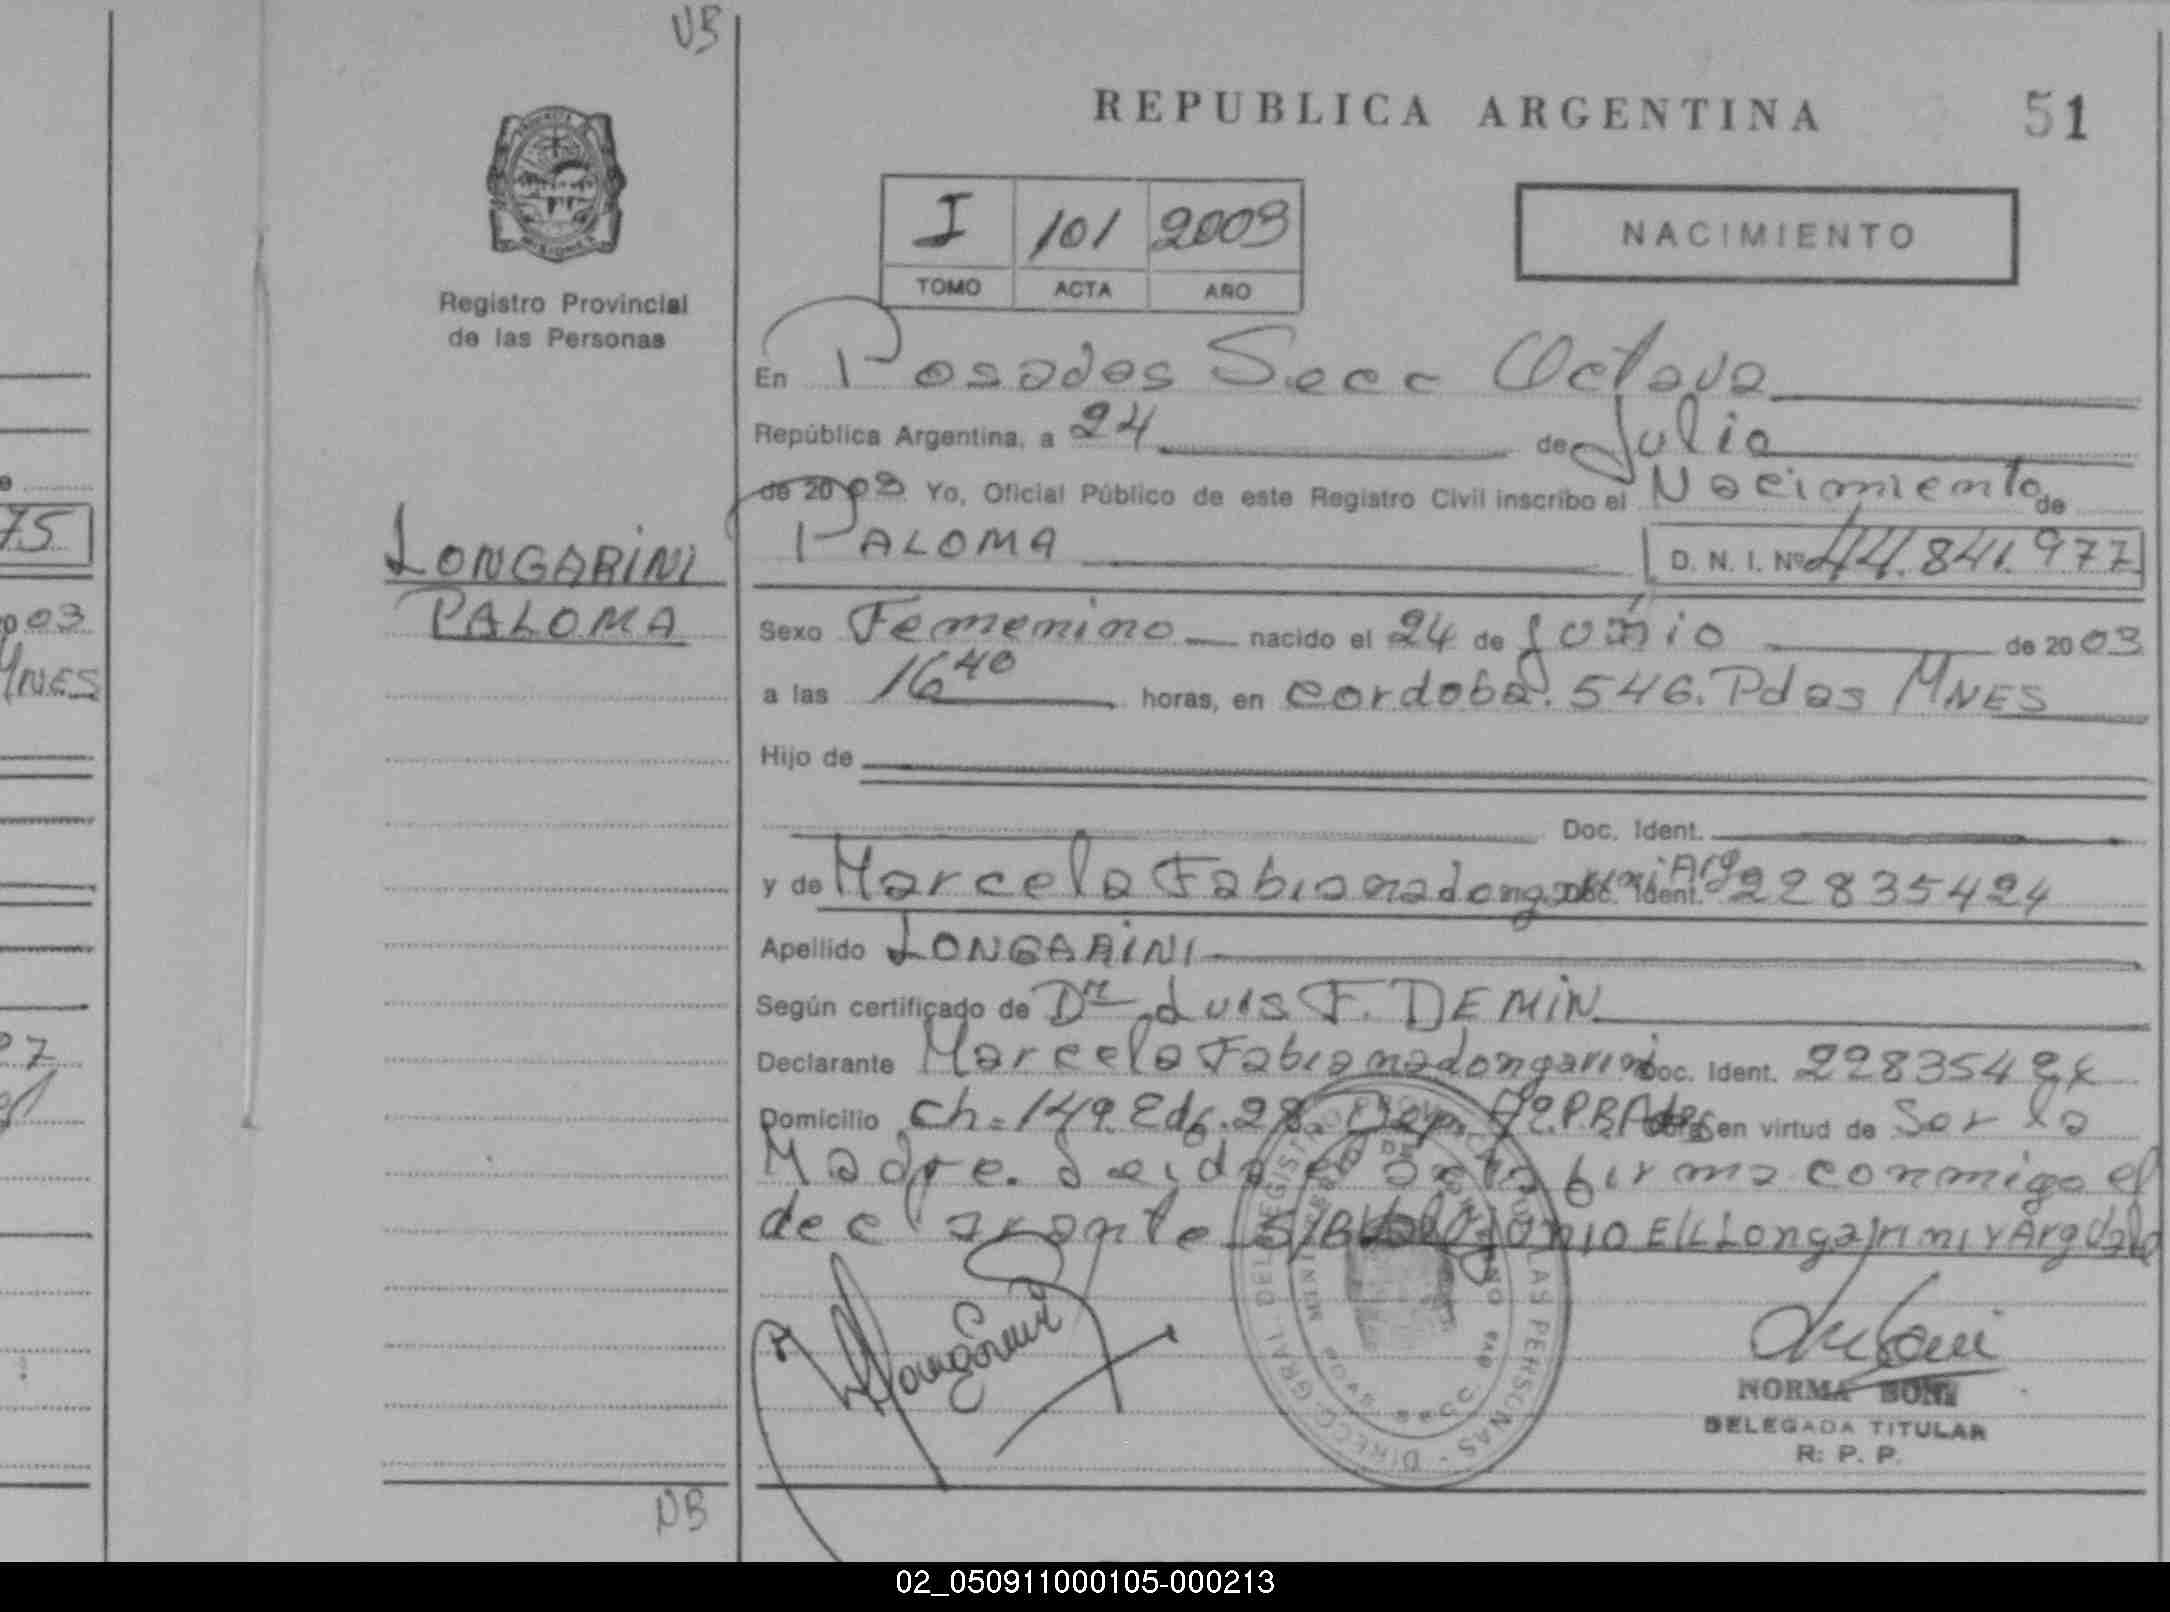 UB
REPUBLICA ARGENTINA
51
I 101 2003
TOMO ACTA AÑO
NACIMIENTO
Registro Provincial
de las Personas
En Posadas Secc Octava
República Argentina, a 24 de Julio
de 2003 Yo, Oficial Público de este Registro Civil inscribo el Nacimiento de
PALOMA D. N. I. Nº 44.841.977
LONGARINI
PALOMA
Sexo Femenino nacido el 24 de Junio de 2003
a las 16 40 horas, en cordoba. 546. Pdas MNES
Hijo de
Doc. Ident.
y de Marcela Fabiana Longarini Arg Doc. Ident. 22835424
Apellido LONGARINI
Según certificado de Dr Luis F. DEMIN
Declarante Marcela Fabiana Longarini Doc. Ident. 22835424
Domicilio Ch. 149. Edf. 28. Dep. P.B. Pdas en virtud de Ser la
Madre. Leida el acta firma conmigo el
declarante S/B Junio E/L Longarini y Arg Vale
Longarini
NORMA BONI
DELEGADA TITULAR
R. P. P.
NB
75
03
MNES
02_050911000105-000213